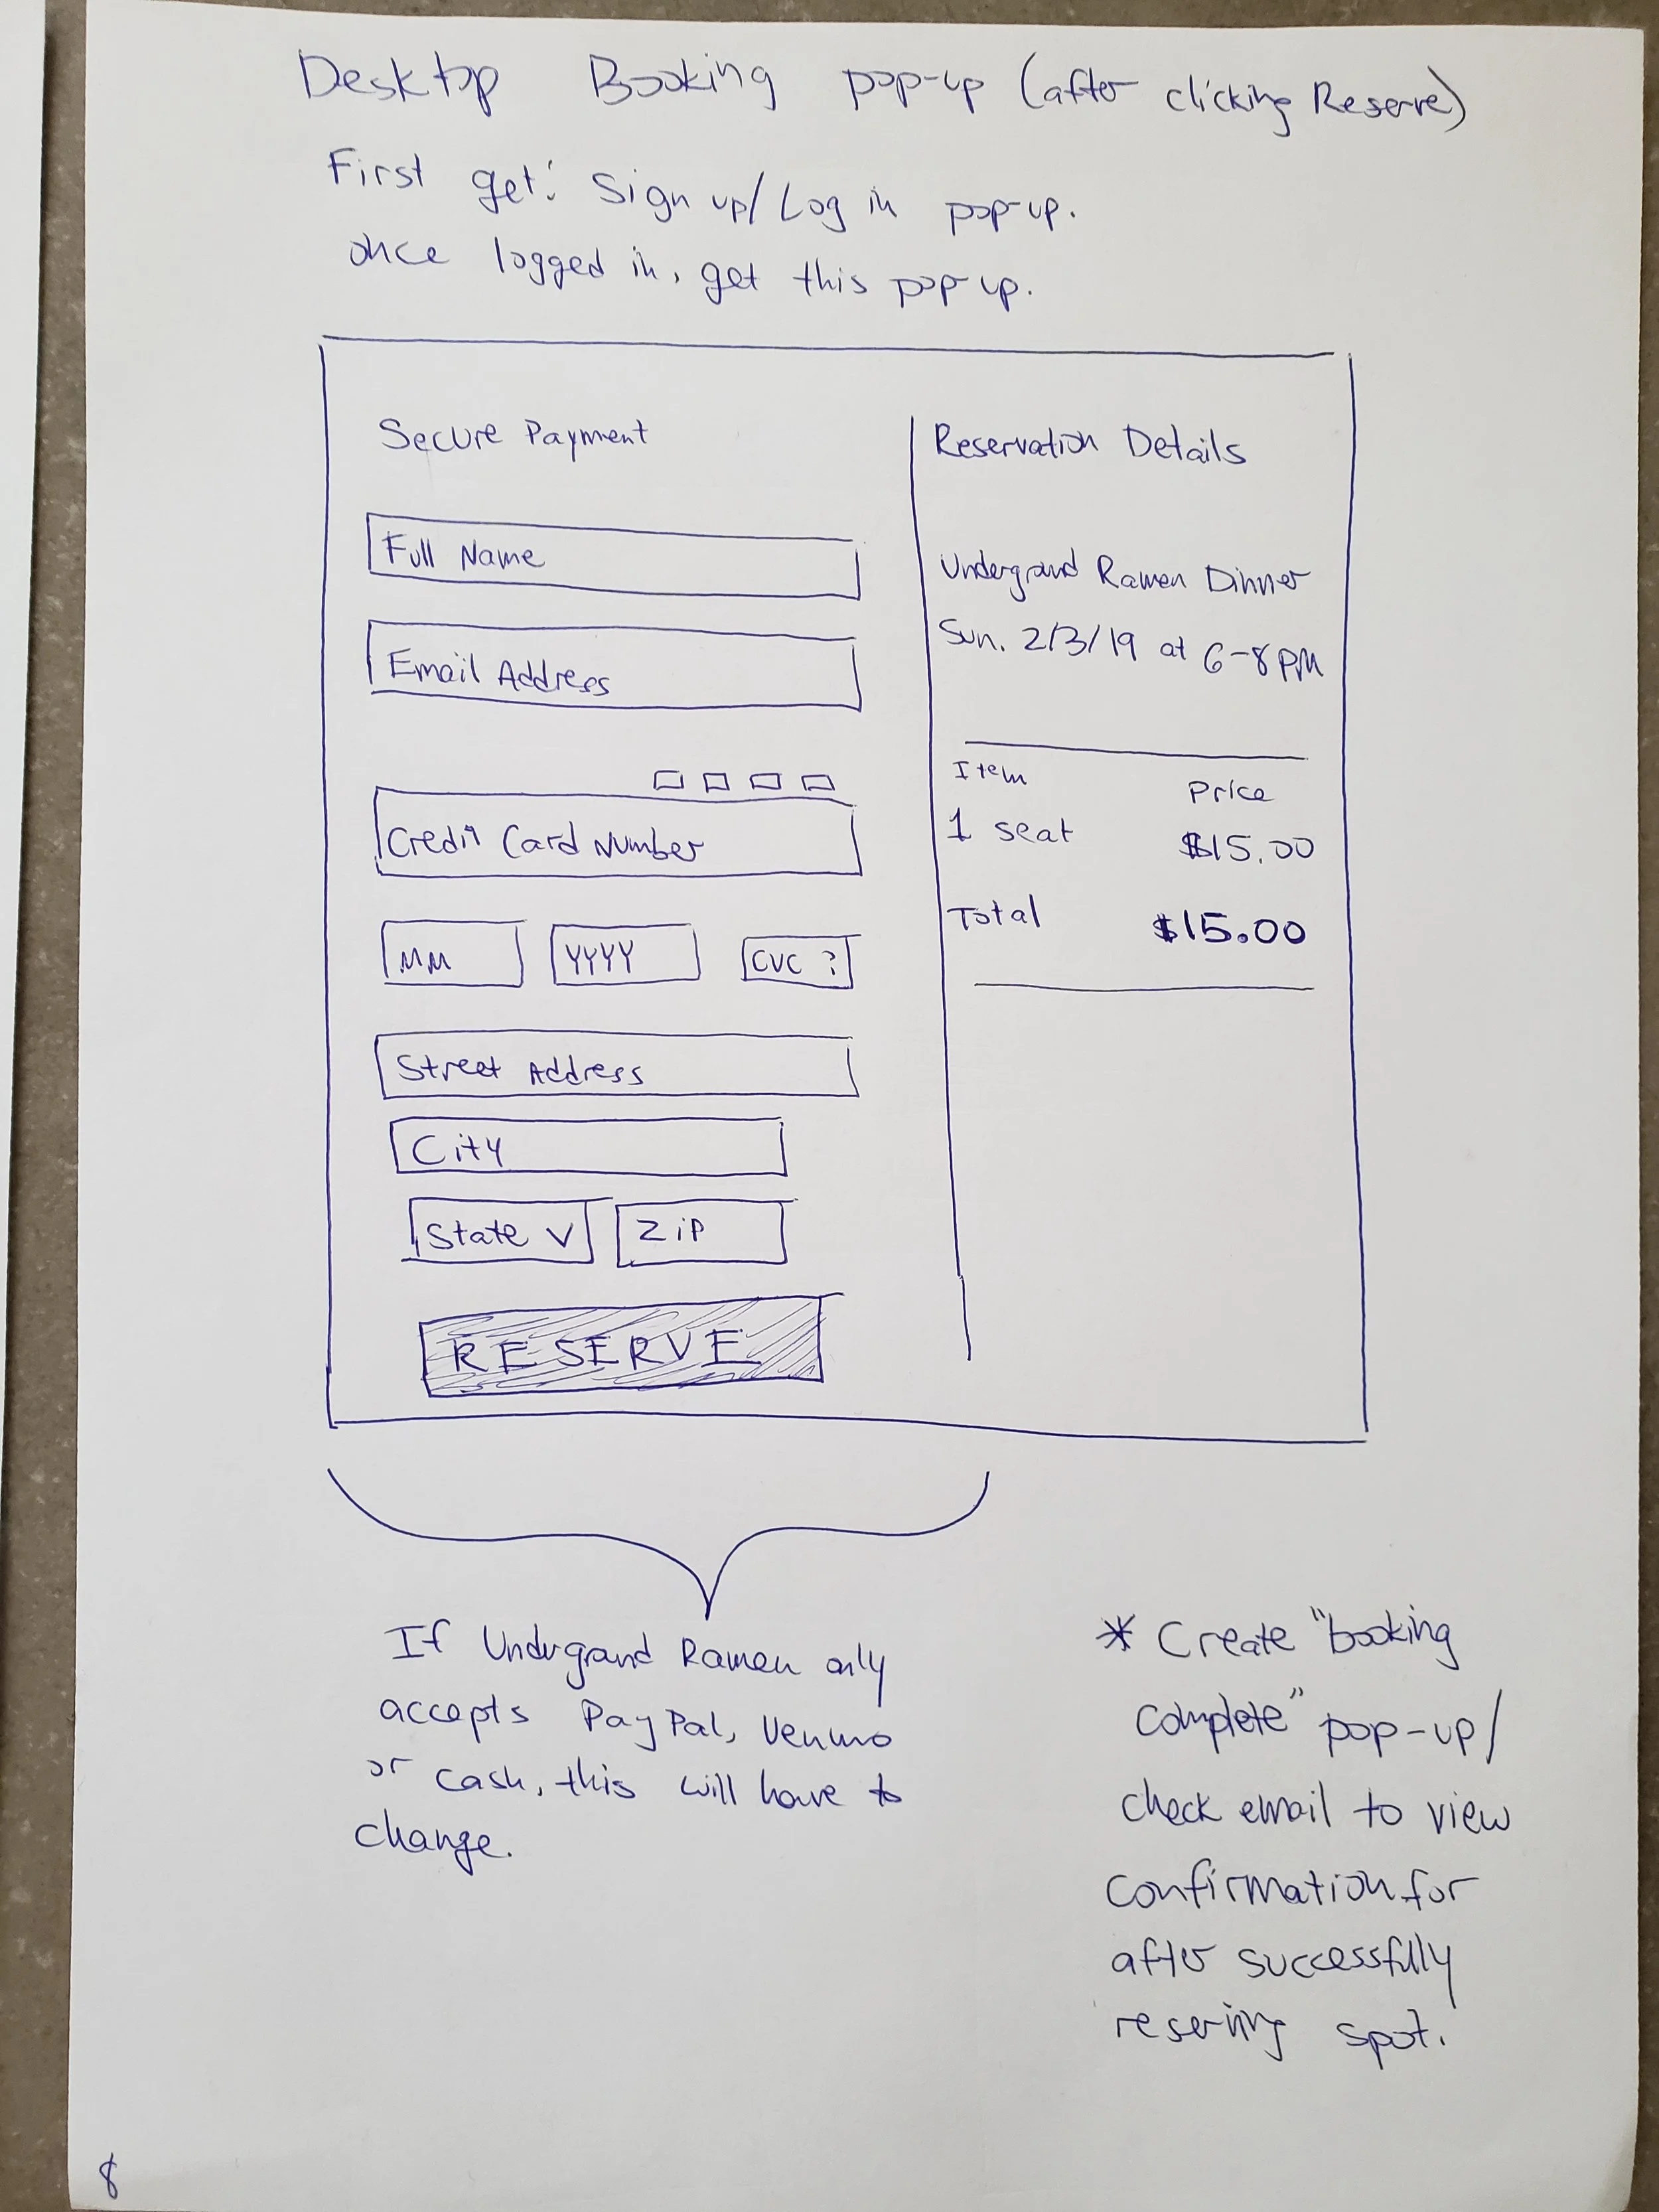 Desktop Booking pop-up (after clicking Reserve)
First get: Sign up/Log in pop-up.
once logged in, get this pop up.
Secure Payment
Full Name
Email Address
Credit Card Number
MM YYYY CVC ?
Street Address
City
State V Zip
RESERVE
Reservation Details
Undergrand Ramen Dinner
Sun. 2/3/19 at 6-8PM
Item Price
1 seat $15.00
Total $15.00
If Undergrand Ramen only
accepts PayPal, Venmo
or cash, this will have to
change.
* Create "booking
complete" pop-up/
check email to view
confirmation for
after successfully
reserving spot.
8